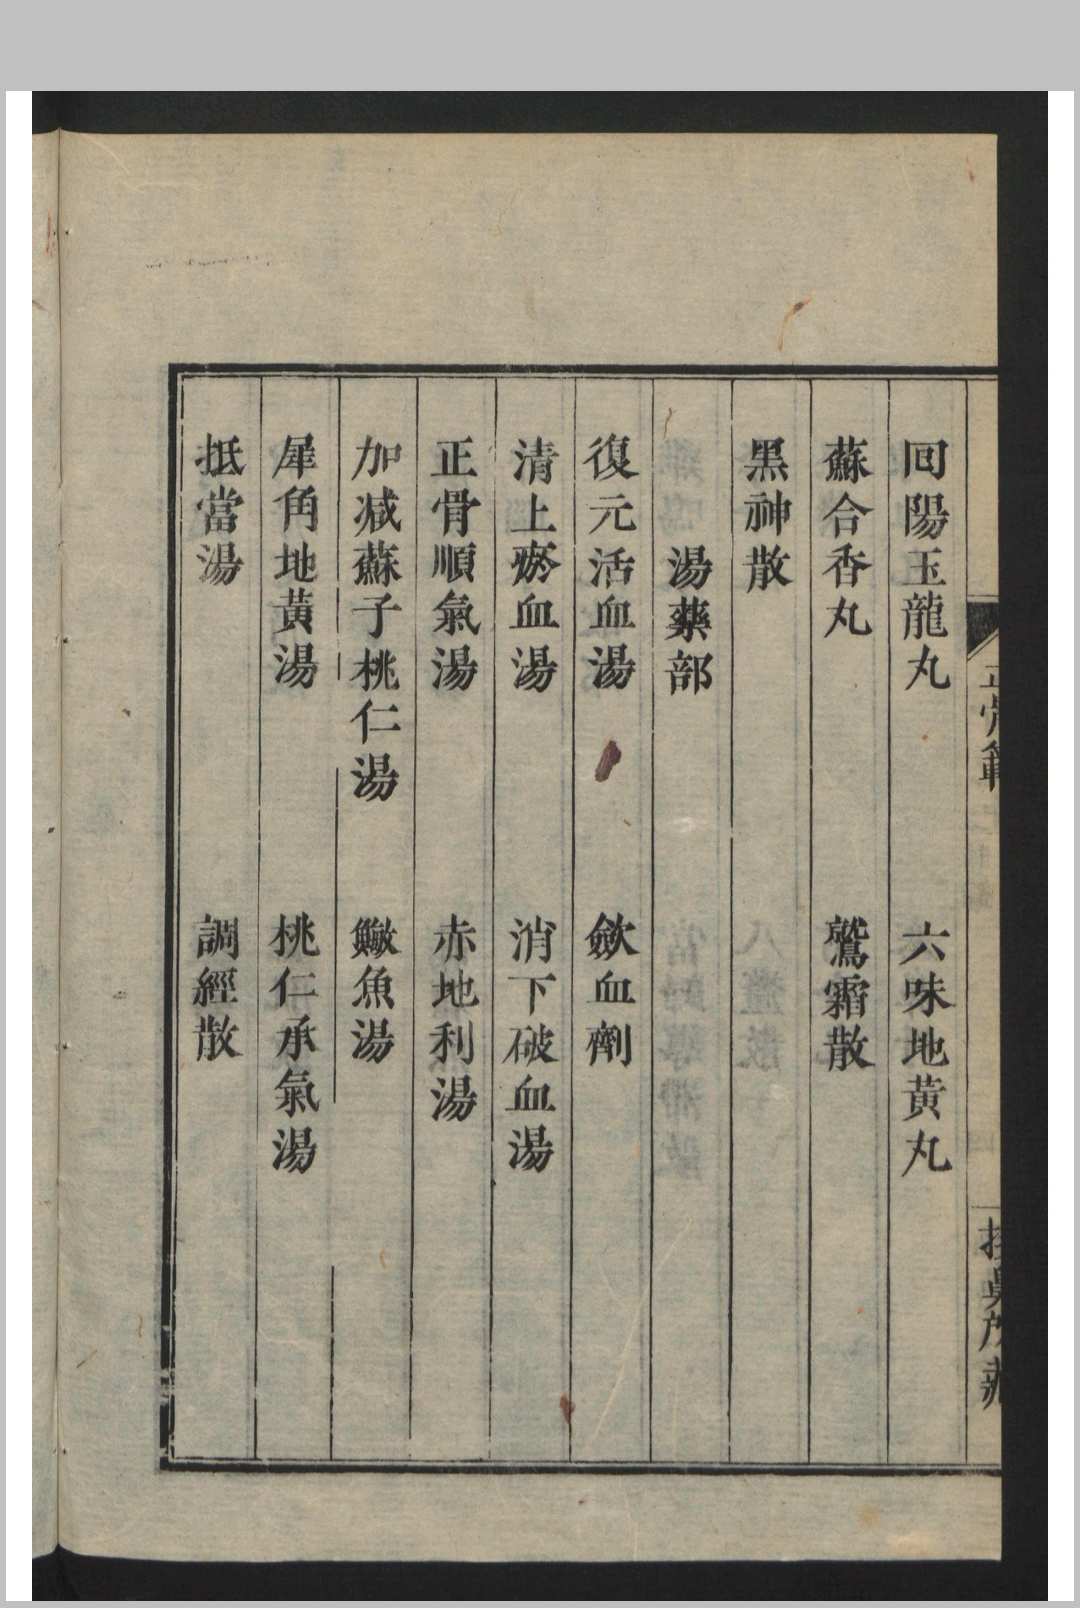 回陽玉龍丸　六味地黃丸
蘇合香丸　鷲霜散
黑神散
湯藥部
復元活血湯　斂血劑
清上瘀血湯　消下破血湯
正骨順氣湯　赤地利湯
加減蘇子桃仁湯　鱖魚湯
犀角地黃湯　桃仁承氣湯
抵當湯　調經散